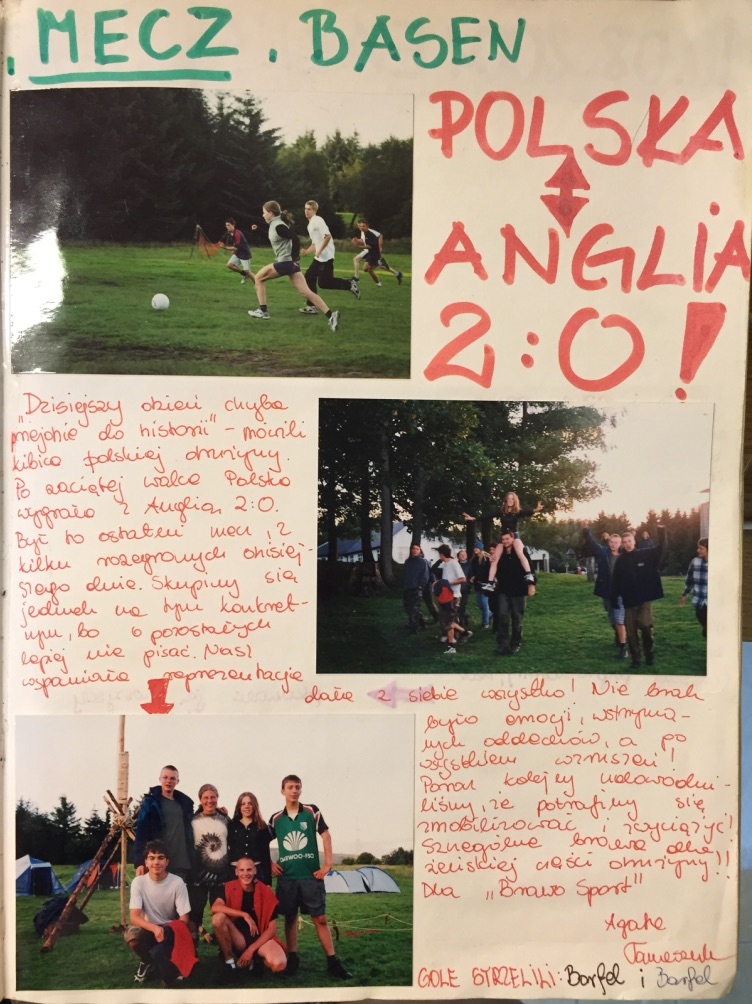 . MECZ . BASEN
POLSKA
ANGLIA
2:0!
"Dzisiejszy dzień chyba
przejdzie do historii" - mówili
kibice polskiej drużyny.
Po zaciętej walce Polska
wygrała z Anglią 2:0.
Był to ostatni mecz z
kilku rozegranych dzisiej-
szego dnia. Skupimy się
jednak na tym konkret-
nym, bo o pozostałych
lepiej nie pisać. Nasza
wspaniała reprezentacja
dała z siebie wszystko! Nie brak
było emocji, wstrzyma-
nych oddechów, a po
wszystkiem wzruszeń!
Poraz kolejny udowodni-
liśmy, że potrafimy się
zmobilizować i zwyciężyć!
Szczególne brawa dla
żeńskiej części drużyny!!
Dla "Brawo Sport"
Agata
GOLE STRZELILI: Barfel i Barfel
DAEWOO-FSO